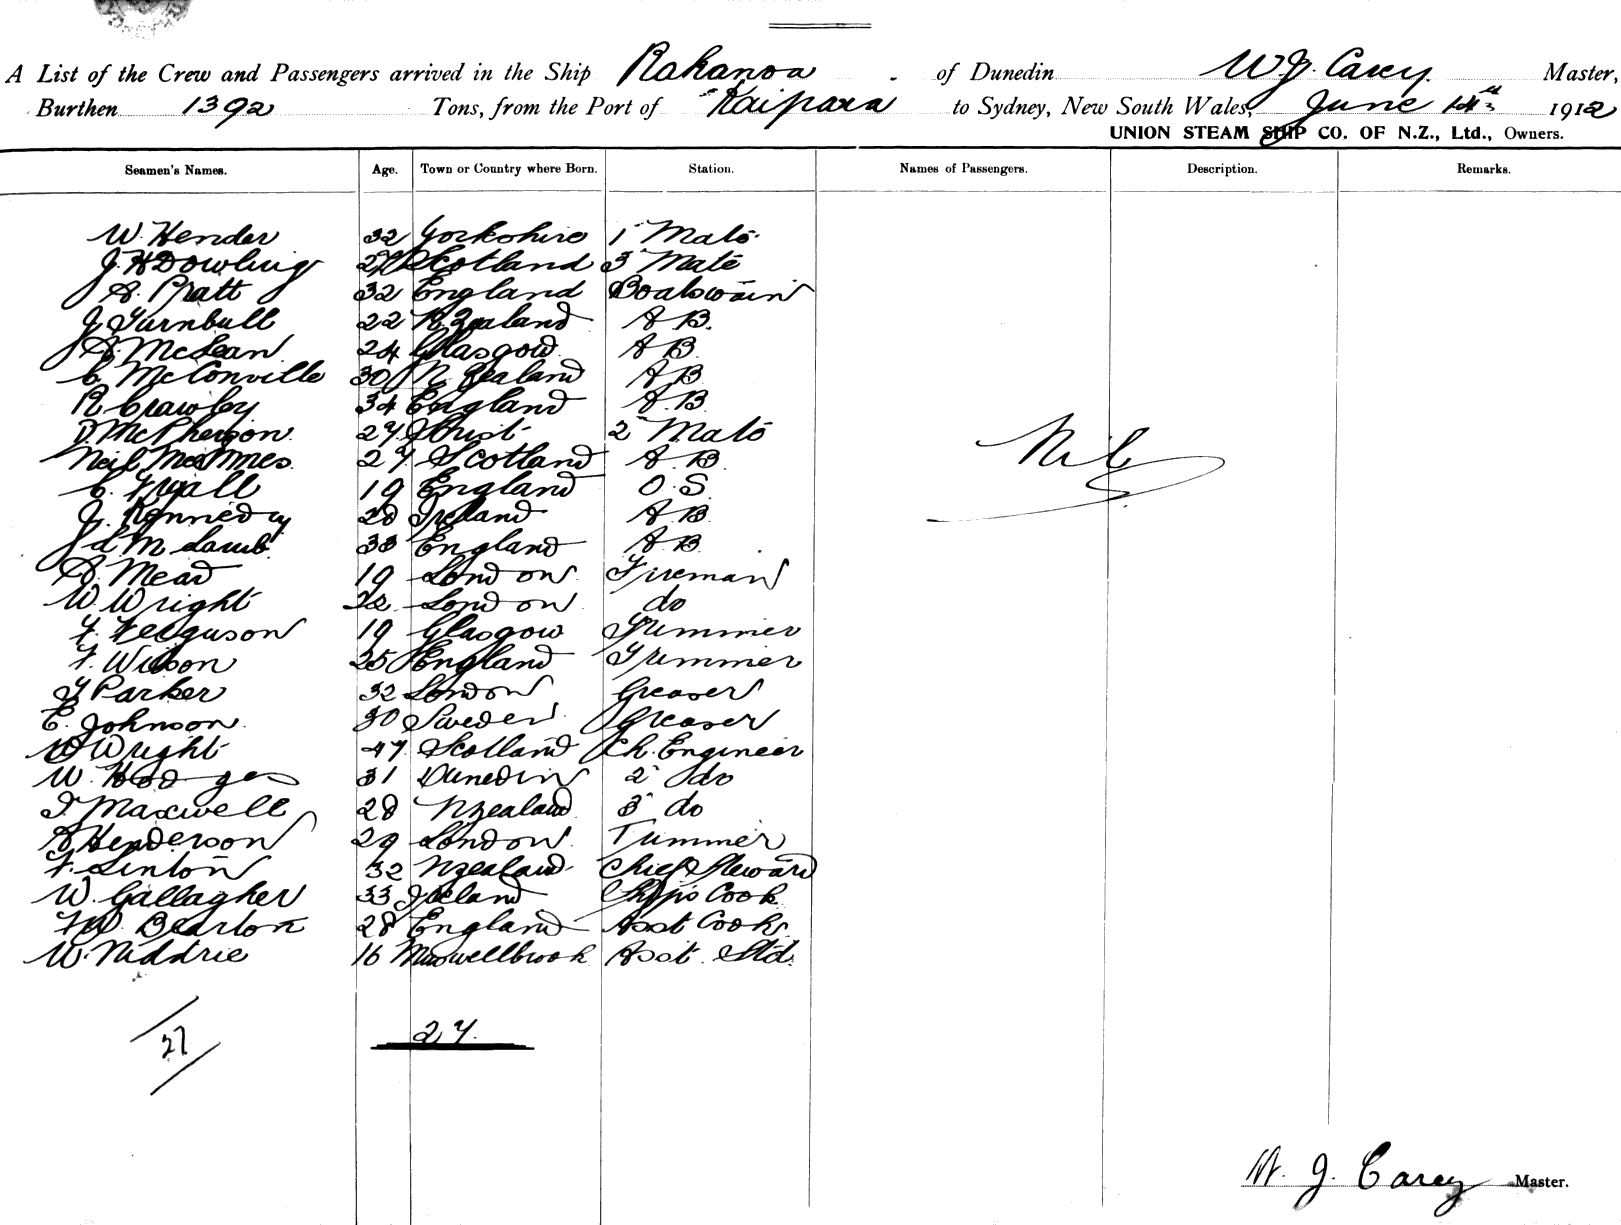 A List of the Crew and Passengers arrived in the Ship Rakanoa of Dunedin W J. Carey Master,
Burthen 1392 Tons, from the Port of Kaipara to Sydney, New South Wales, June 14th 1912
UNION STEAM SHIP CO. OF N.Z., Ltd., Owners.
Seamen's Names. Age. Town or Country where Born. Station. Names of Passengers. Description. Remarks.
W. Hender 32 Yorkshire 1" Mate
J. H Dowling Scotland 3" Mate
A. Pratt 32 England Boatswain
J Turnbull 22 N. Zealand A B.
A. McLean 24 Glasgow A B.
C McConville 30 N. Zealand A B
R Crawley 34 England A. B
D. McPherson 27 2" Mate
Neil McInnes 27 Scotland A. B
C. Fryall 19 England O. S.
J. Kennedy 28 Ireland A B
J. L. M Lamb 33 England A B.
A. Mead 19 London Fireman
W. Wright 22 London do
F. Ferguson 19 Glasgow Trimmer
F. Wilson 25 England Trimmer
Parker 32 London Greaser
E. Johnson 30 Sweden Greaser
Wright 47 Scotland Ch. Engineer
W. Hodges 31 Dunedin 2" do
Maxwell 28 NZealand 3" do
A Henderson 29 London Trimmer
F. Linton 32 NZealand Chief Steward
W. Gallagher 33 Ireland Ship's Cook
F W. Bearton 28 England Asst Cook
W. Niddrie 16 Maxwellbrook Asst. Std.
Nil
27
27.
W. J. Carey Master.